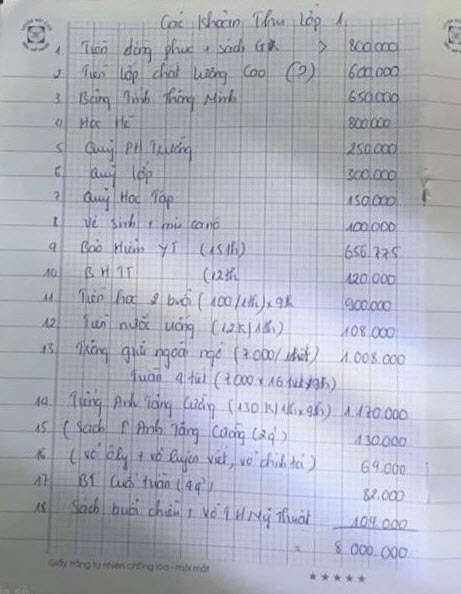 Các Khoản Thu Lớp 1
1 Tiền đồng phục + sách GK > 800.000
2 Tiền lớp chất lượng cao (?) 600.000
3 Bảng Tính Thông Minh 650.000
4 Học Hè 800.000
5 Quỹ PH Trường 250.000
6 Quỹ lớp 300.000
7 Quỹ Học Tập 150.000
8 Vệ sinh + 100.000
9 Bảo Hiểm YT (15th) 656.775
10 BHTT (12th 120.000
11 Tiền học 2 buổi (100/1th) x 9th 900.000
12 Tiền nước uống (12k/1th) 108.000
13 Trông giữ ngoài ngờ (7.000/tiết) 1.008.000
tuần 4 tiết (7000 x 16 tiết/9th)
14 Tiếng Anh Tăng Cường (130K/1th x 9th) 1.170.000
15 (Sách T Anh Tăng Cường (2q) 130.000
16 (vở ôly + vở luyện viết, vở chính tả) 69.000
17 BT Cuối tuần (4q) 82.000
18 Sách buổi chiều + vở TH Mỹ Thuật 104.000
= 8.000.000
Giấy trắng tự nhiên chống lóa - mỏi mắt
★★★★★